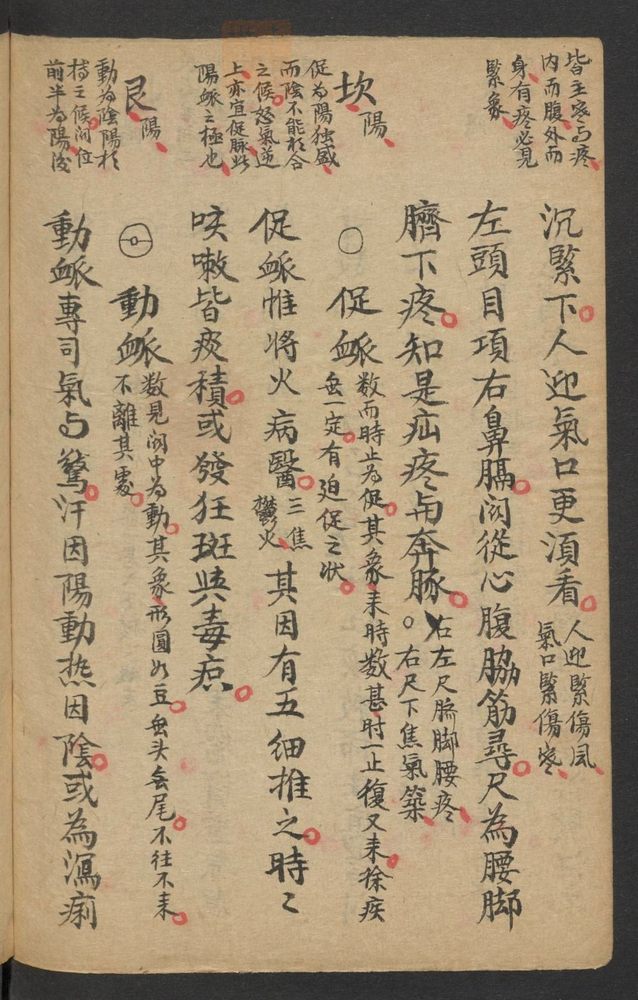 皆主寒与疼
内而腹外而
身有疼必見
緊象
沉緊下人迎氣口更湏看
人迎緊傷風
氣口緊傷寒
左頭目項右鼻膈関從心腹脇筋尋尺為腰脚
臍下疼知是疝疼与奔豚
右左尺臍脚腰疼
右尺下焦氣築
坎陽
促為陽独盛
而陰不能相合
之候怒氣逆
上亦宜促脉此
陽衇之極也
○促衇
数而時止為促其象来時数甚时一止復又来徐疾
無定有迫促之状
促衇惟将火病醫
三焦
鬱火
其因有五細推之時〻
咳嗽皆痰積或發狂斑與毒疽
艮陽
動為陰陽相
搏之候関位
前半為陽後
動衇
数見関中為動其象形圓如豆無头無尾不往不来
不離其處
動衇專司氣与驚汗因陽動热因陰或為瀉痢